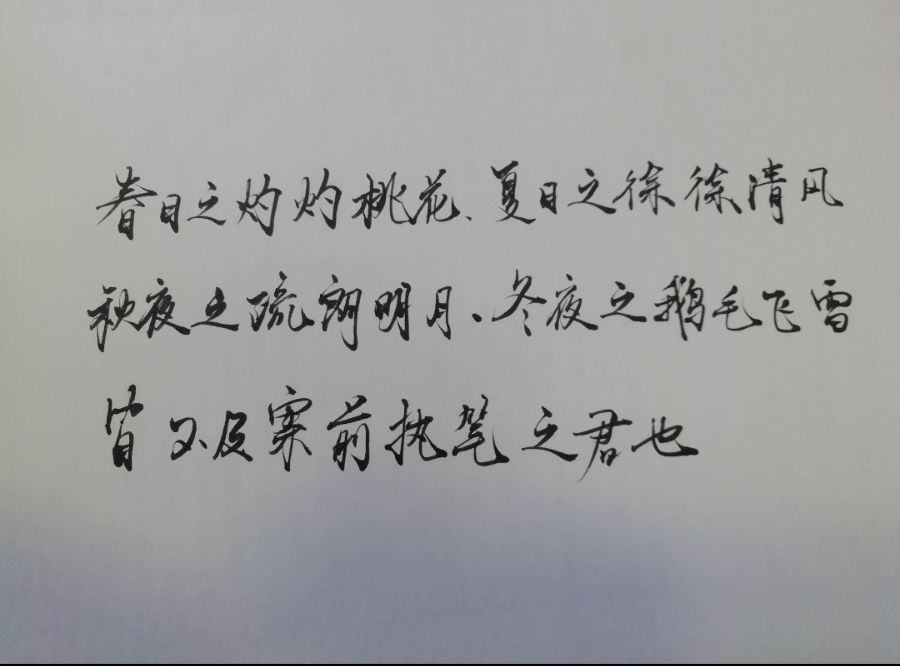 春日之灼灼桃花、夏日之徐徐清风
秋夜之疏朗明月、冬夜之鹅毛飞雪
皆不及案前执笔之君也